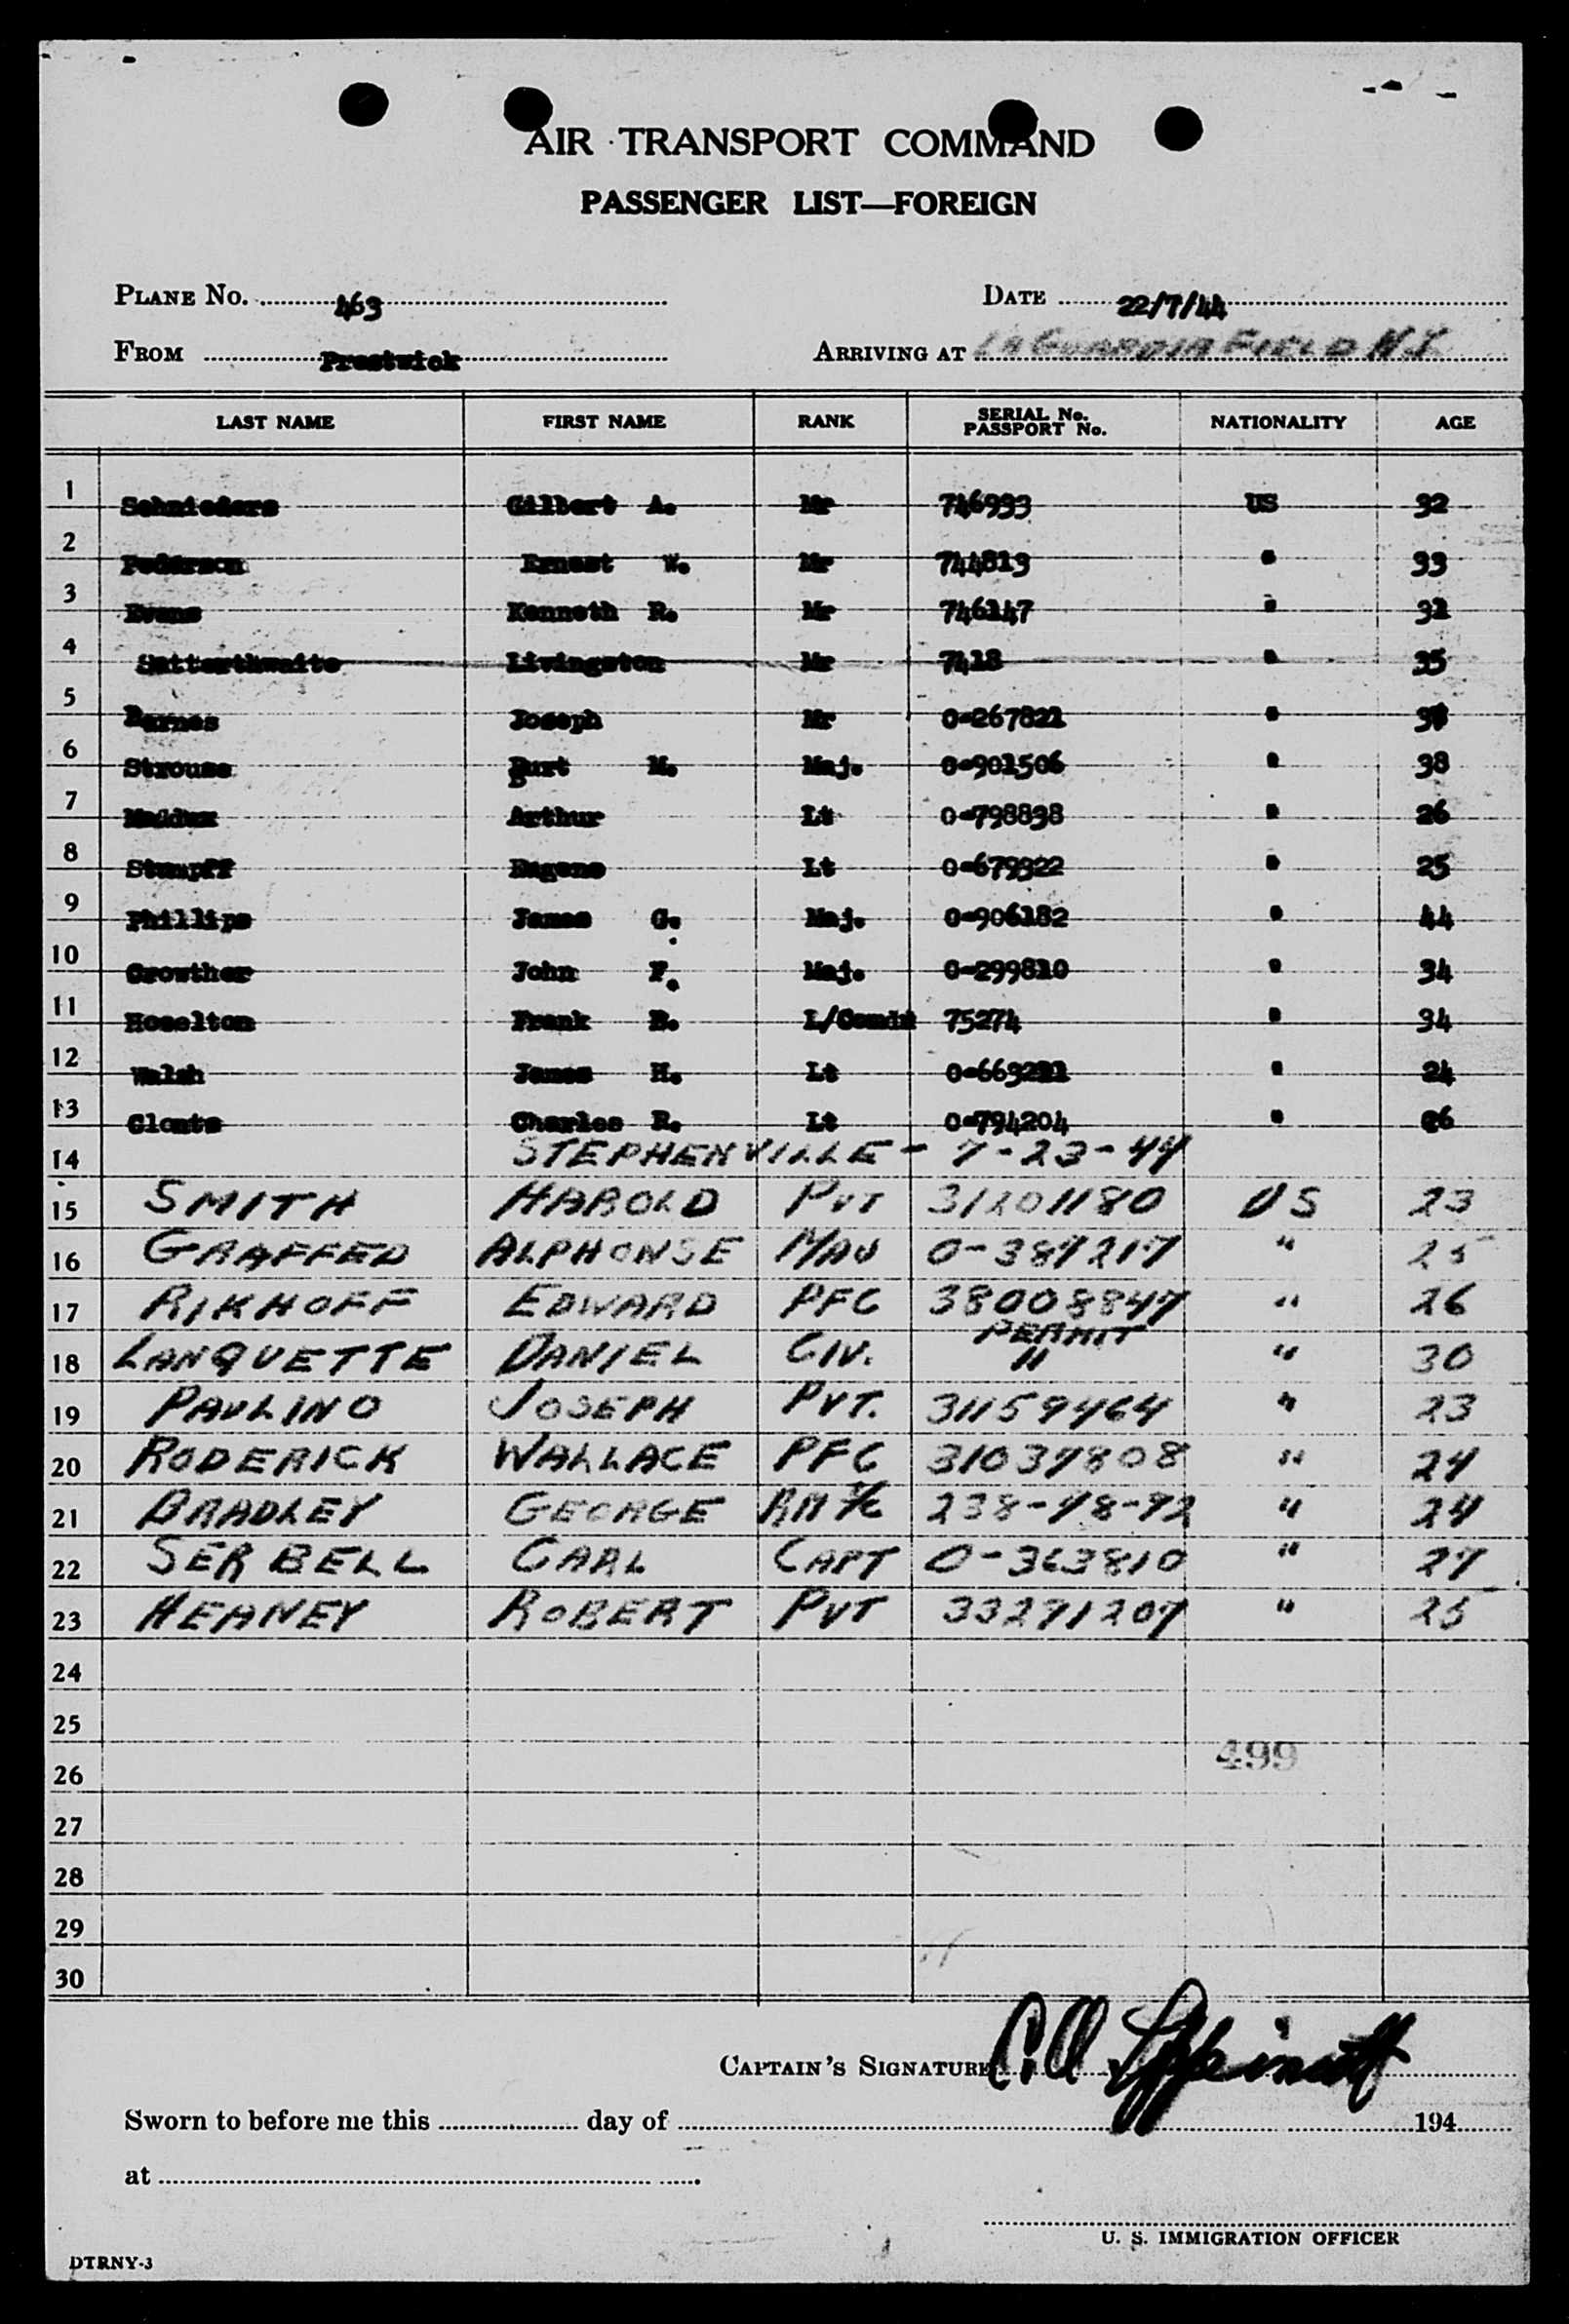 AIR TRANSPORT COMMAND
PASSENGER LIST—FOREIGN
PLANE No. 463 DATE 22/7/44
FROM Prestwick ARRIVING AT LA GUARDIA FIELD N.Y.
LAST NAME FIRST NAME RANK SERIAL No. PASSPORT No. NATIONALITY AGE
1 Schnieders Gilbert A. Mr 746993 US 32
2 Pederson Ernest W. Mr 744813 " 33
3 Evans Kenneth R. Mr 746147 "
4 Satterthwaite Livingston Mr 7418 " 35
5 Barnes Joseph Mr 0-267821 "
6 Strouse Burt M. Maj. 0-901506 " 38
7 Maddux Arthur Lt 0-798838 " 26
8 Stumpff Eugene Lt 0-679322 " 25
9 Phillips James G. Maj. 0-906182 " 44
10 Crowther John F. Maj. 0-299810 " 34
11 Hoselton Frank B. L/Comdr 75274 " 34
12 Walsh James H. Lt " 24
13 Clonts Charles R. Lt 0-794204 " 26
14 STEPHENVILLE - 7-23-44
15 SMITH HAROLD PVT 31201180 US 23
16 GRAFFEO ALPHONSE MAJ 0-387217 " 25
17 RIKHOFF EDWARD PFC 38008847 " 26
18 LANQUETTE DANIEL CIV. PERMIT " " 30
19 PAULINO JOSEPH PVT. 31159464 " 23
20 RODERICK WALLACE PFC 31037808 " 24
21 BRADLEY GEORGE 238-78-92 " 24
22 SERBELL CARL CAPT 0-363810 " 27
23 HEANEY ROBERT PVT 33271207 " 25
24
25
26 499
27
28
29
30
CAPTAIN'S SIGNATURE
Sworn to before me this day of 194
at
U. S. IMMIGRATION OFFICER
DTRNY-3